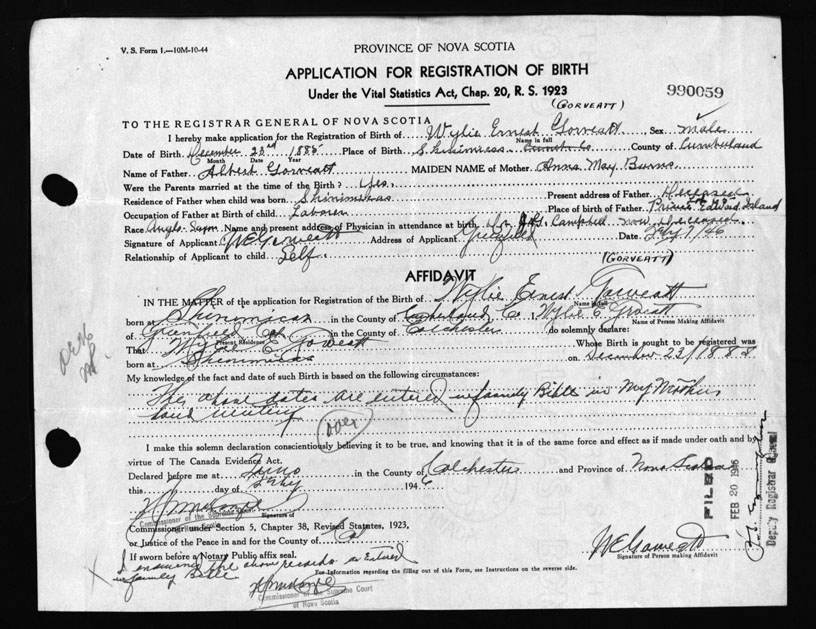 V. S. Form 1.—10M-10-44
PROVINCE OF NOVA SCOTIA
APPLICATION FOR REGISTRATION OF BIRTH
Under the Vital Statistics Act, Chap. 20, R. S. 1923
990059
(GORVEATT)
TO THE REGISTRAR GENERAL OF NOVA SCOTIA
I hereby make application for the Registration of Birth of Wylie Ernest Gorveatt Sex male
Name in full
Date of Birth December 23rd 1888 Place of Birth Shinimicas County of Cumberland
Month Date Year
Name of Father Albert Gorveatt MAIDEN NAME of Mother Anna May Burns
Were the Parents married at the time of the Birth? Yes, Present address of Father Deceased
Residence of Father when child was born Shinimikas Place of birth of Father Prince Edward Island
Occupation of Father at Birth of child Laborer
Race Anglo-Saxon Name and present address of Physician in attendance at birth Dr. Campbell now Deceased
Signature of Applicant Address of Applicant Date Feby 7/46
Relationship of Applicant to child Self.
(GORVEATT)
AFFIDAVIT
IN THE MATTER of the application for Registration of the Birth of Wylie Ernest Gorveatt
Name in full
born at Shinimicas in the County of Cumberland Co. Wylie E
Name of Person Making Affidavit
of Greenfield Col in the County of Colchester do solemnly declare:
Present Residence
That Wylie E. Gorveatt Whose Birth is sought to be registered was
born at Shinimicas on December 23/1888
My knowledge of the fact and date of such Birth is based on the following circumstances:
The above dates are entered in family Bible in My Mothers
hand writing
over
I make this solemn declaration conscientiously believing it to be true, and knowing that it is of the same force and effect as if made under oath and by
virtue of The Canada Evidence Act.
Declared before me at Truro in the County of Colchester and Province of Nova Scotia
this day of Feby 1946
Signature of
Commissioner of the Supreme Court
of Nova Scotia
Commissioner under Section 5, Chapter 38, Revised Statutes, 1923,
or Justice of the Peace in and for the County of Col
If sworn before a Notary Public affix seal.
Signature of Person making Affidavit
the above records as Entered
in family Bible
For Information regarding the filling out of this Form, see Instructions on the reverse side.
Commissioner of the Supreme Court
of Nova Scotia
FILED
FEB 20 1946
Deputy Registrar General